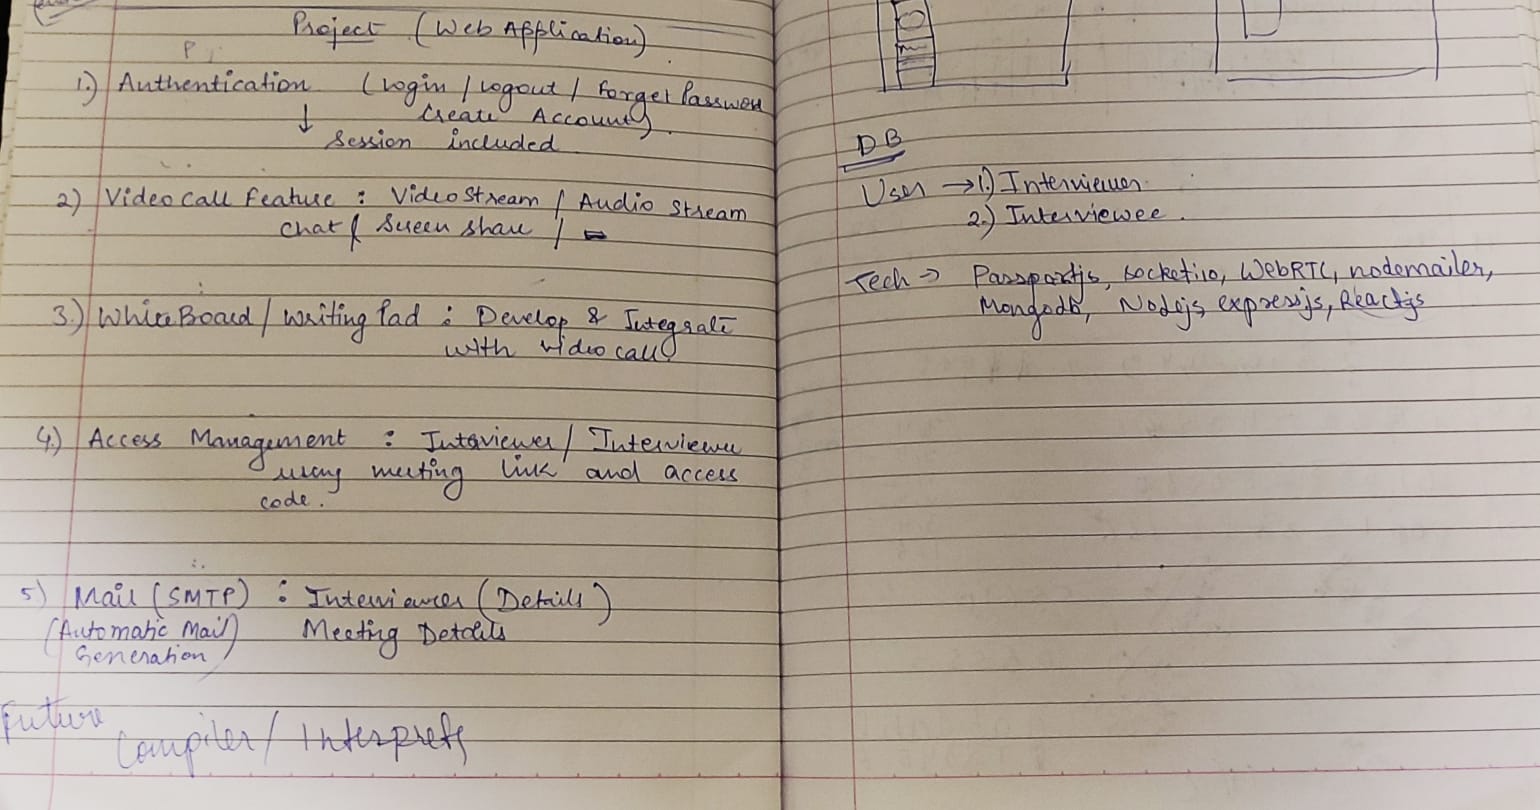 Project (Web Application)
1.) Authentication (Login / Logout / Forget Password
Create Account).
↓ Session included
2) Video Call Feature : Video Stream / Audio Stream
Chat / Screen Share /
3.) White Board / Writing Pad : Develop & Integrate
with video call
4.) Access Management : Interviewer / Interviewee
using meeting link and access
code.
5) Mail (SMTP) : Interviewer (Details)
(Automatic Mail) Meeting Details
Generation
Future
Compiler /
DB
User → 1.) Interviewer.
2.) Interviewee.
Tech → Passportjs, socketio, WebRTC, nodemailer,
Mongodb, Nodejs, expressjs, Reactjs